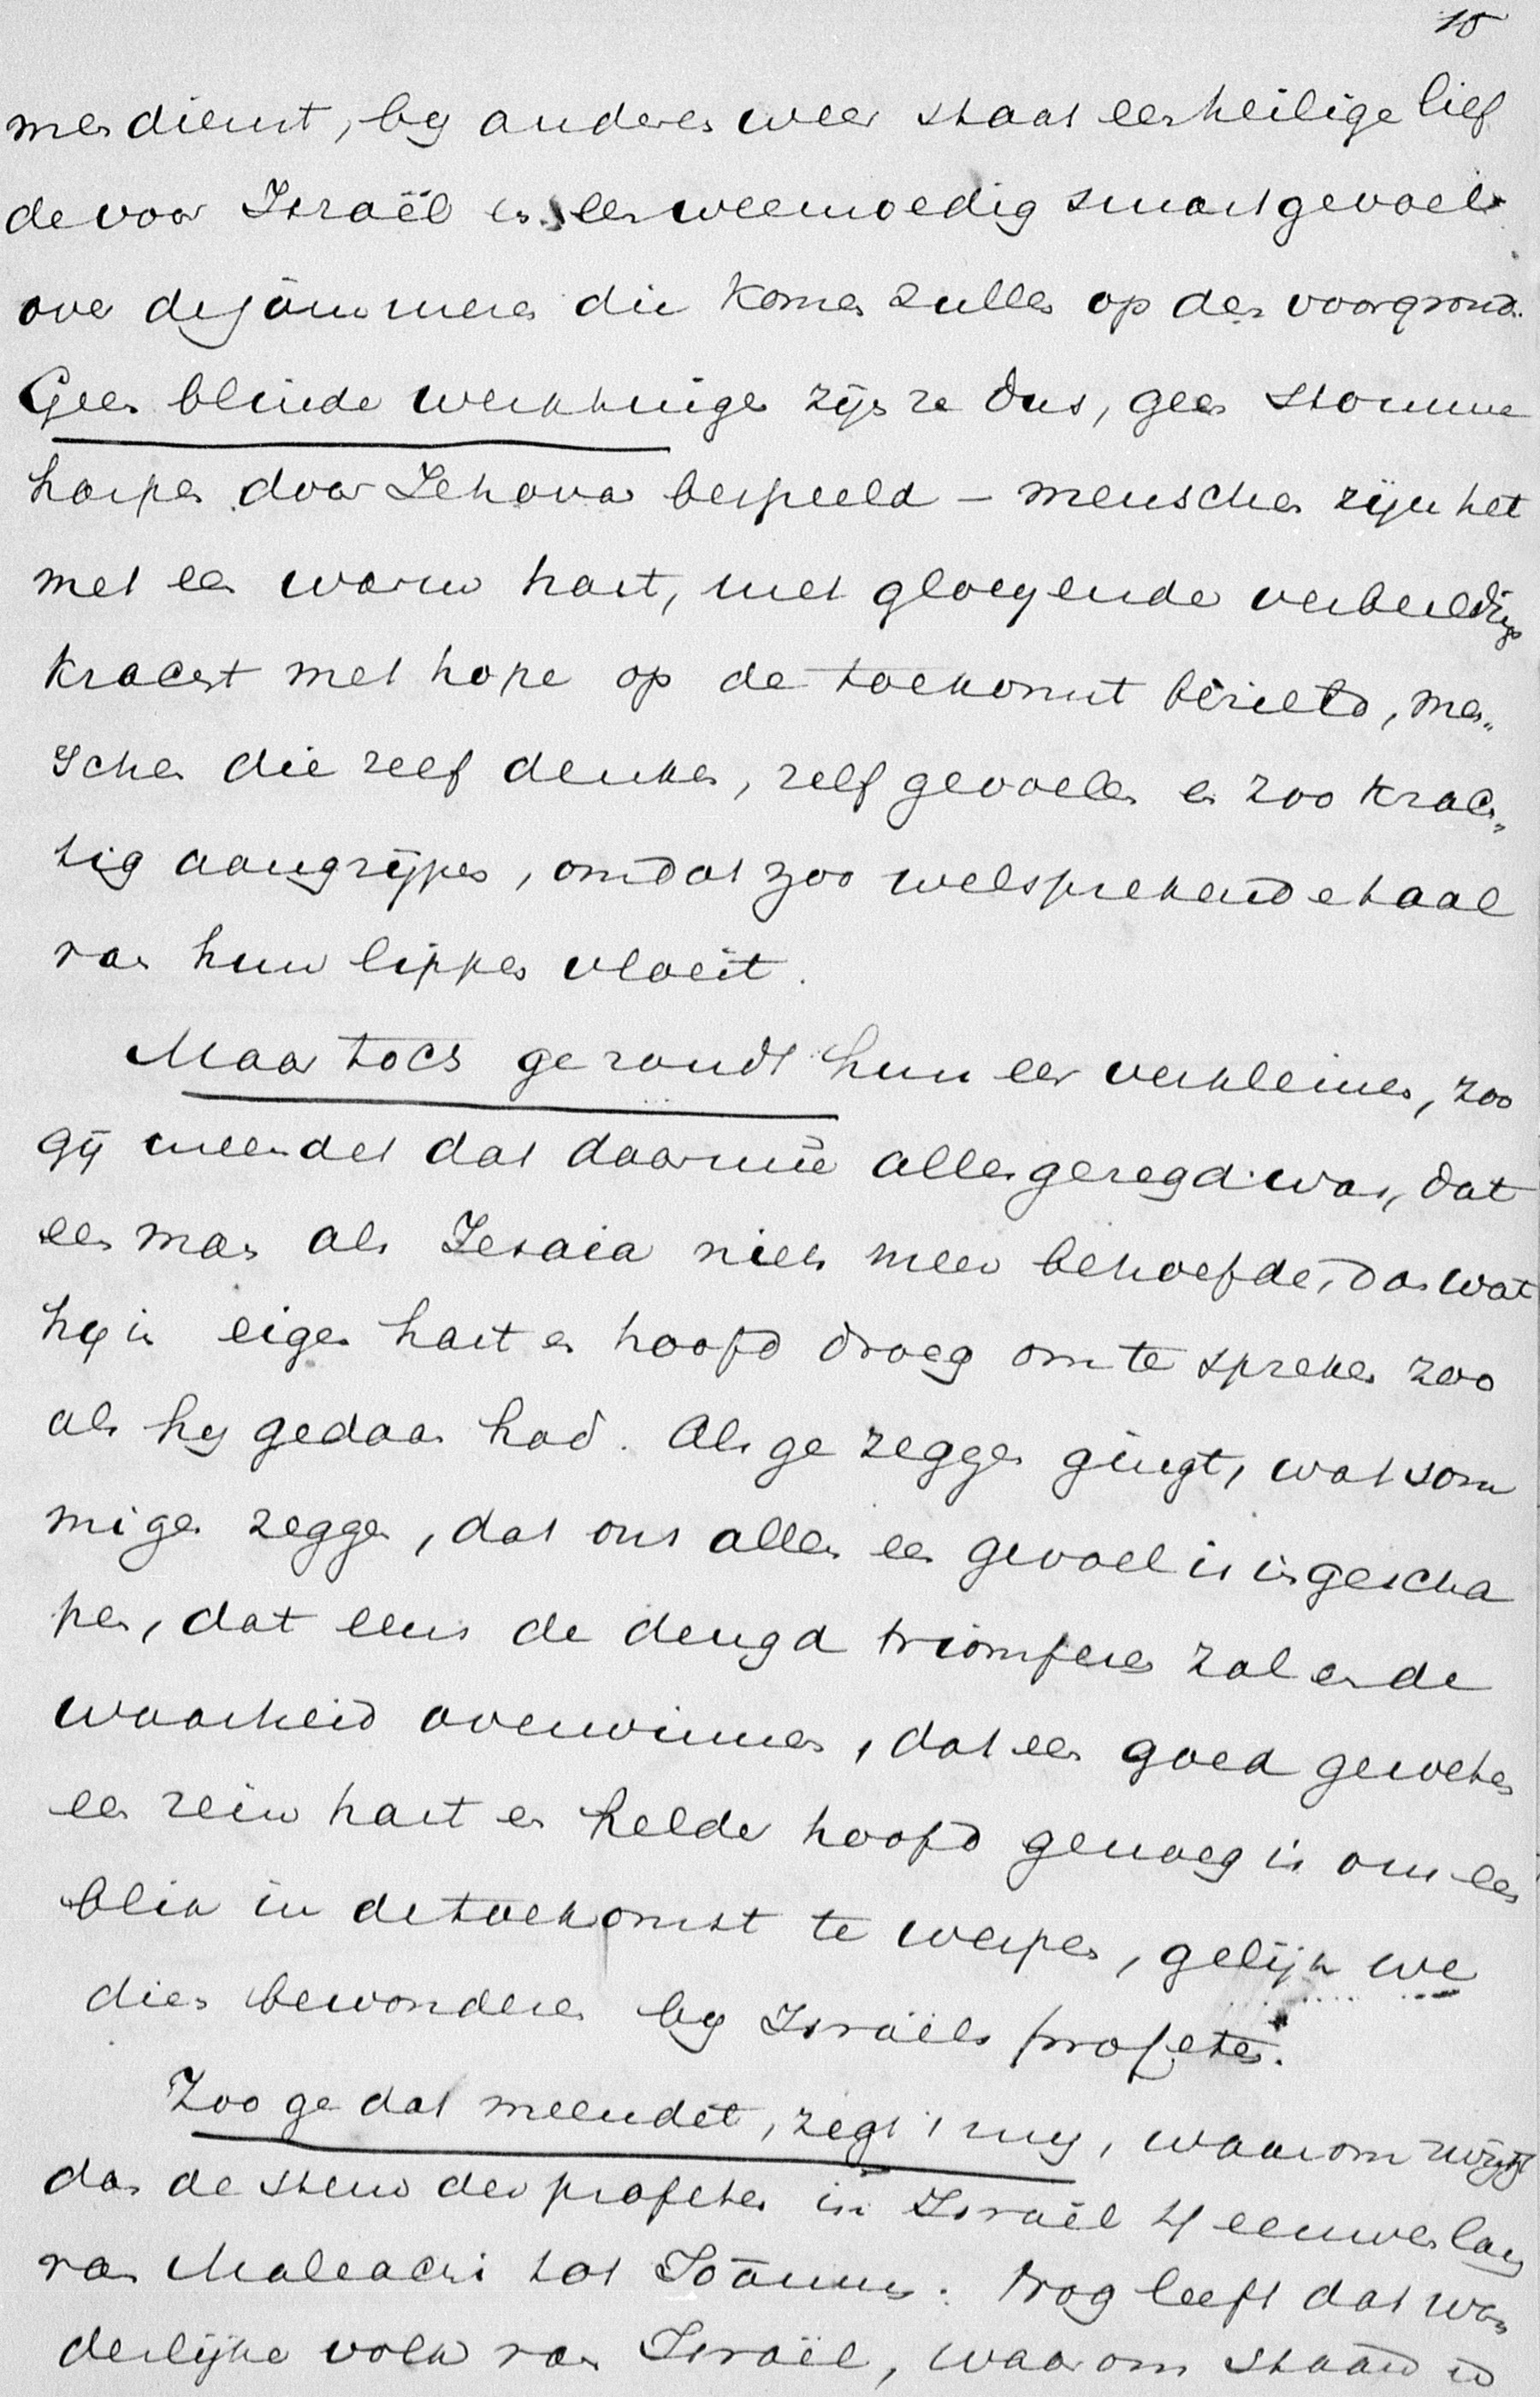 15
mer dient, by anderen weer staat een heilige lief
de voor Israël en een weemoedig smartgevoel
over de jammeren die komen zullen op den voorgrond.
Geen blinde werktuigen zijn ze dus, geen stomme
harpen door Jehova bespeeld – menschen zijn het
met een warm hart, met gloeyende verbeeldings
kracht met hope op de toekomst bezield, men„
schen die zelf denken, zelf gevoelen en zoo krach„
tig aangrijpen, omdat zoo welsprekende taal
van hun lippen vloeit.
Maar toch ge zoudt hun eer verkleinen, zoo
gij meendet dat daarmee alles gezegd was, dat
een man als Jesaia niets meer behoefde, dan wat
hij in eigen hart en hoofd droeg om te spreken zoo
als hij gedaan had. Als ge zeggen gingt, wat som
migen zeggen, dat ons allen een gevoel is ingescha
pen, dat eens de deugd triomferen zal en de
waarheid overwinnen, dat een goed geweten
een rein hart en helder hoofd genoeg is om een
blik in de toekomst te werpen, gelijk we
dien bewonderen by Israëls profeten.
Zoo ge dat meendet, zegt 't my, waarom zwijgt
dan de stem der profeten in Israël 4 eeuwen lang
van Maleachi tot Joännes. Nog leeft dat won
derlijke volk van Israël, waarom staat